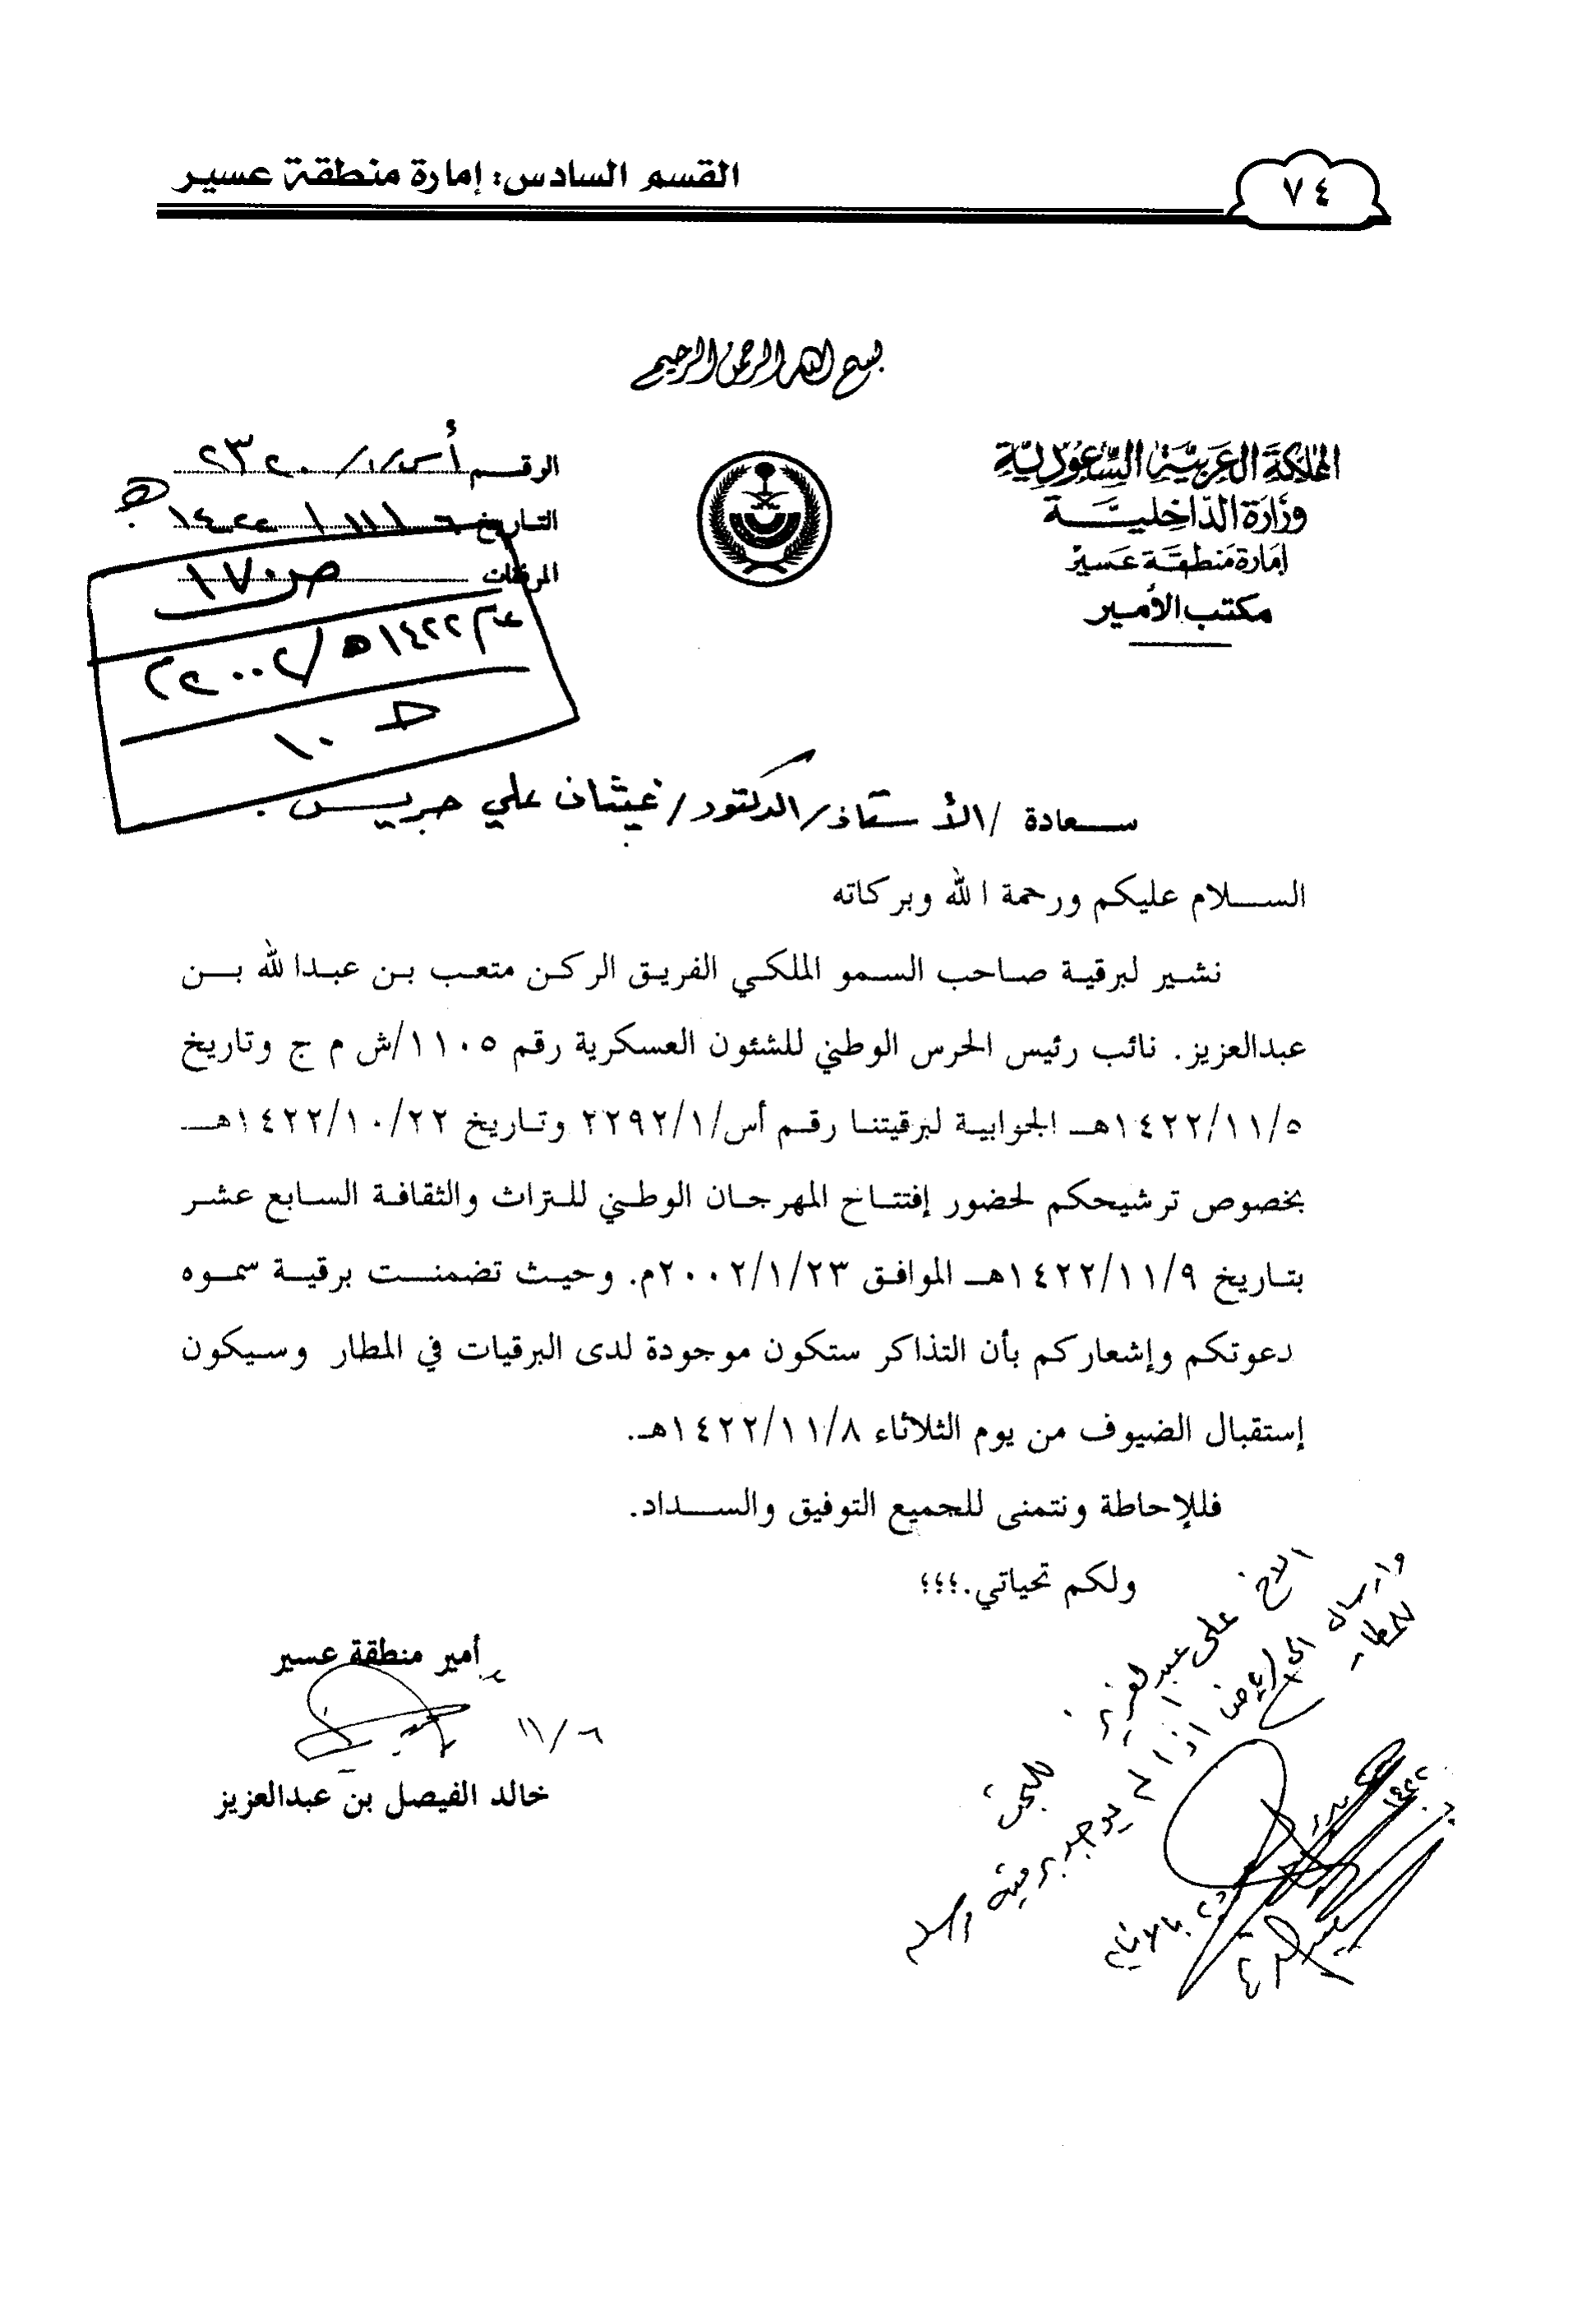 القسم السادس: إمارة منطقة عسير
٧٤
بسم الله الرحمن الرحيم
المملكة العربية السعودية
وزارة الداخلية
إمارة منطقة عسير
مكتب الأمير
الرقم أس/١/٢٣٢٠
التاريخ ٦/١١/١٤٢٢هـ
المرفقات
ص١٧٠
عام ١٤٢٢هـ/٢٠٠٢م
ط ١٠
سعادة /الأستاذ/الدكتور/غيثان علي جريس.
السلام عليكم ورحمة الله وبركاته
نشير لبرقية صاحب السمو الملكي الفريق الركن متعب بن عبدالله بن
عبدالعزيز. نائب رئيس الحرس الوطني للشئون العسكرية رقم ١١٠٥/ش م ج وتاريخ
١٤٢٢/١١/٥هـ الجوابية لبرقيتنا رقم أس/٢٢٩٢/١ وتاريخ ١٤٢٢/١٠/٢٢هـ
بخصوص ترشيحكم لحضور إفتتاح المهرجان الوطني للتراث والثقافة السابع عشر
بتاريخ ١٤٢٢/١١/٩هـ الموافق ٢٠٠٢/١/٢٣م. وحيث تضمنت برقية سموه
دعوتكم وإشعاركم بأن التذاكر ستكون موجودة لدى البرقيات في المطار وسيكون
إستقبال الضيوف من يوم الثلاثاء ١٤٢٢/١١/٨هـ.
فللإحاطة ونتمنى للجميع التوفيق والسداد.
ولكم تحياتي.؛؛؛
أمير منطقة عسير
١١/٦
خالد الفيصل بن عبدالعزيز
الاخ علي عبدالعزيز للبحث
اذا لم يوجد برقية
للمطار